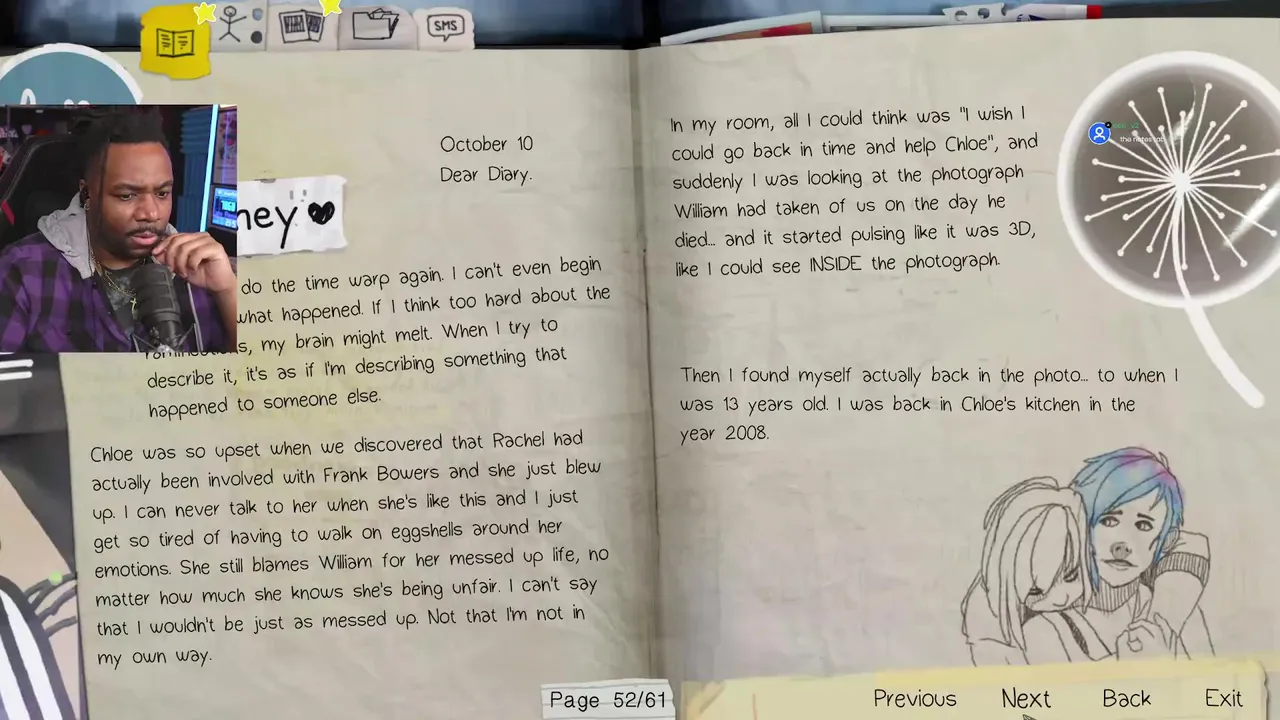 SMS
October 10
Dear Diary.
hey
do the time warp again. I can't even begin
what happened. If I think too hard about the
my brain might melt. When I try to
describe it, it's as if I'm describing something that
happened to someone else.
Chloe was so upset when we discovered that Rachel had
actually been involved with Frank Bowers and she just blew
up. I can never talk to her when she's like this and I just
get so tired of having to walk on eggshells around her
emotions. She still blames William for her messed up life, no
matter how much she knows she's being unfair. I can't say
that I wouldn't be just as messed up. Not that I'm not in
my own way.
In my room, all I could think was "I wish I
could go back in time and help Chloe", and
suddenly I was looking at the photograph
William had taken of us on the day he
died... and it started pulsing like it was 3D,
like I could see INSIDE the photograph.
Then I found myself actually back in the photo... to when I
was 13 years old. I was back in Chloe's kitchen in the
year 2008.
Page 52/61
Previous Next Back Exit